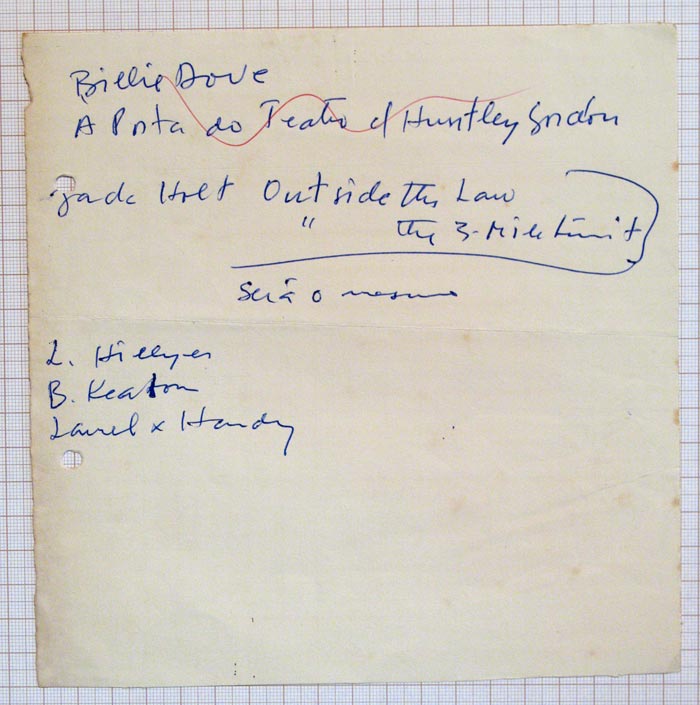 Billie Dove
A Porta do Teatro c/ Huntley Gordon
Jack Holt Outside the Law
" the 3-Mile Limit
Será o mesmo
L. Hillyer
B. Keaton
Laurel x Hardy